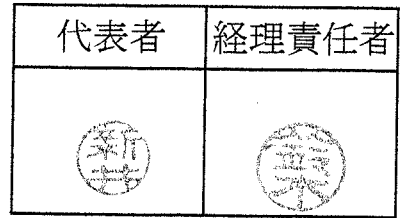 代表者 経理責任者
新井